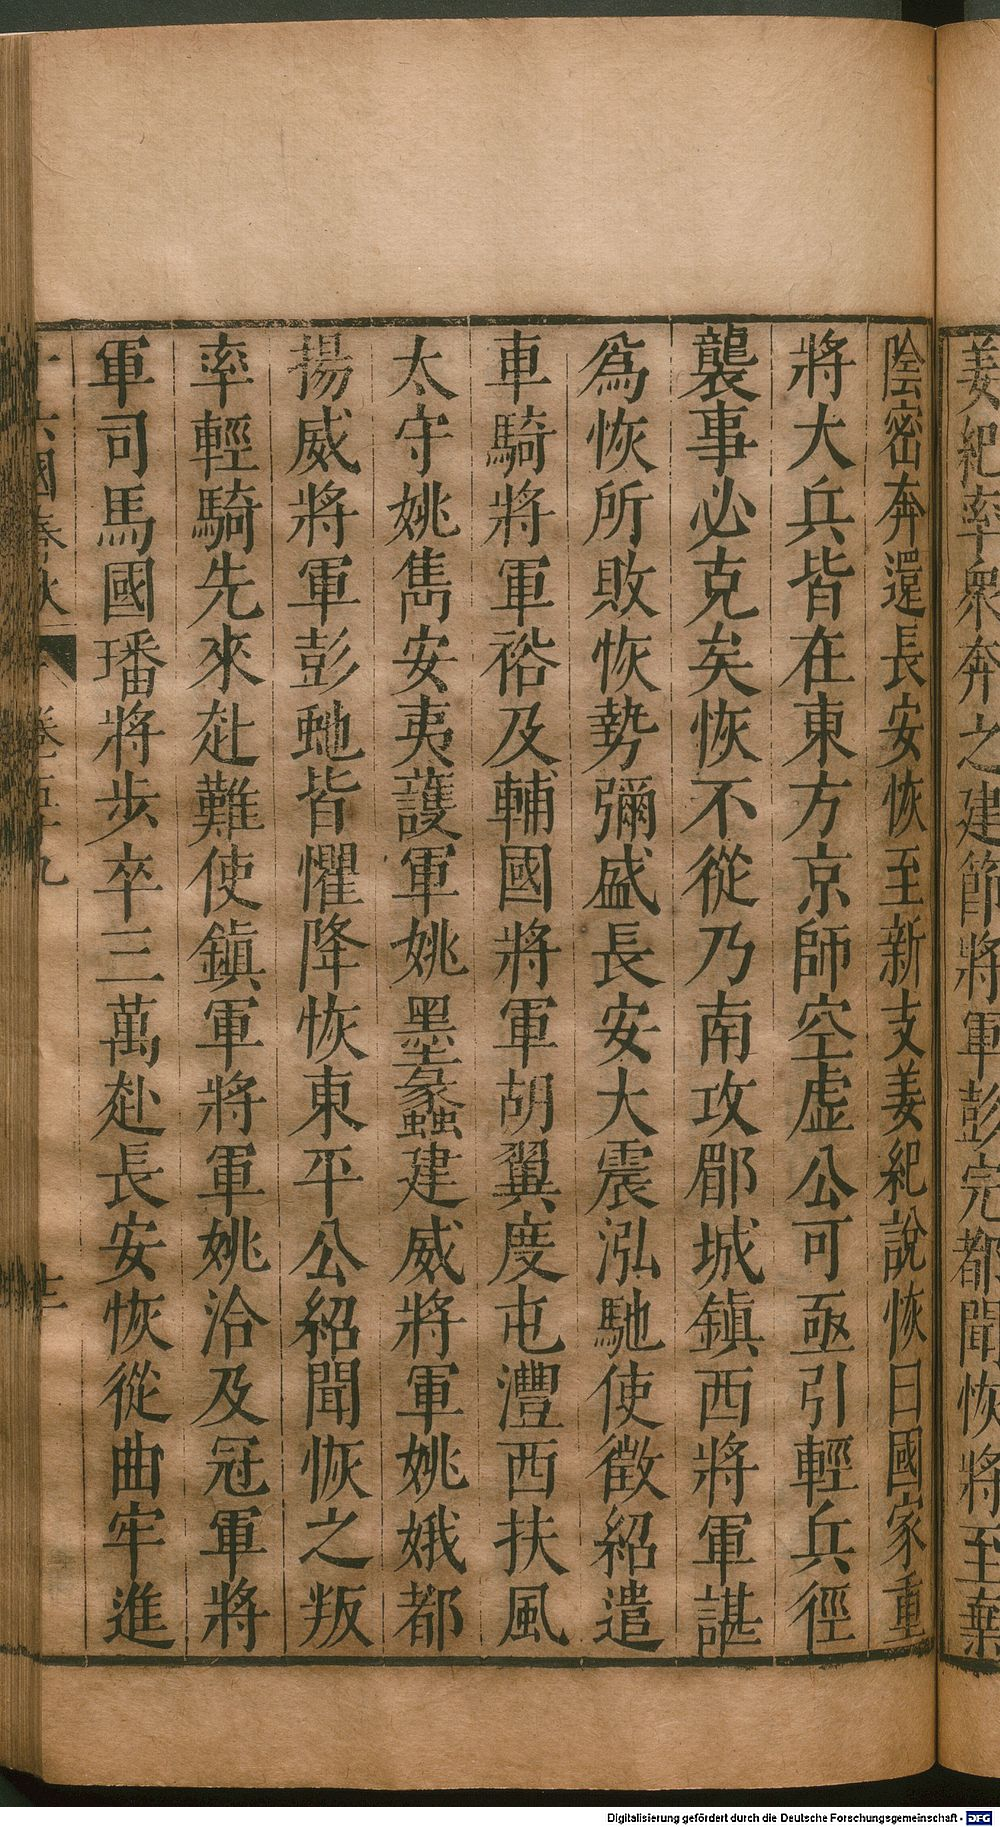 姜紀率衆奔之建節將軍彭完都聞恢將至棄
陰密奔還長安恢至新支姜紀說恢曰國家重
將大兵皆在東方京師空虛公可亟引輕兵徑
襲事必克矣恢不從乃南攻郿城鎮西將軍諶
爲恢所敗恢勢彌盛長安大震泓馳使徵紹遣
車騎將軍裕及輔國將軍胡翼度屯灃西扶風
太守姚雋安夷護軍姚墨蠡建威將軍姚娥都
揚威將軍彭蚝皆懼降恢東平公紹聞恢之叛
率輕騎先來赴難使鎮軍將軍姚洽及冠軍將
軍司馬國璠將步卒三萬赴長安恢從曲牢進
十六國春秋 卷五十九 廿一
Digitalisierung gefördert durch die Deutsche Forschungsgemeinschaft - DFG